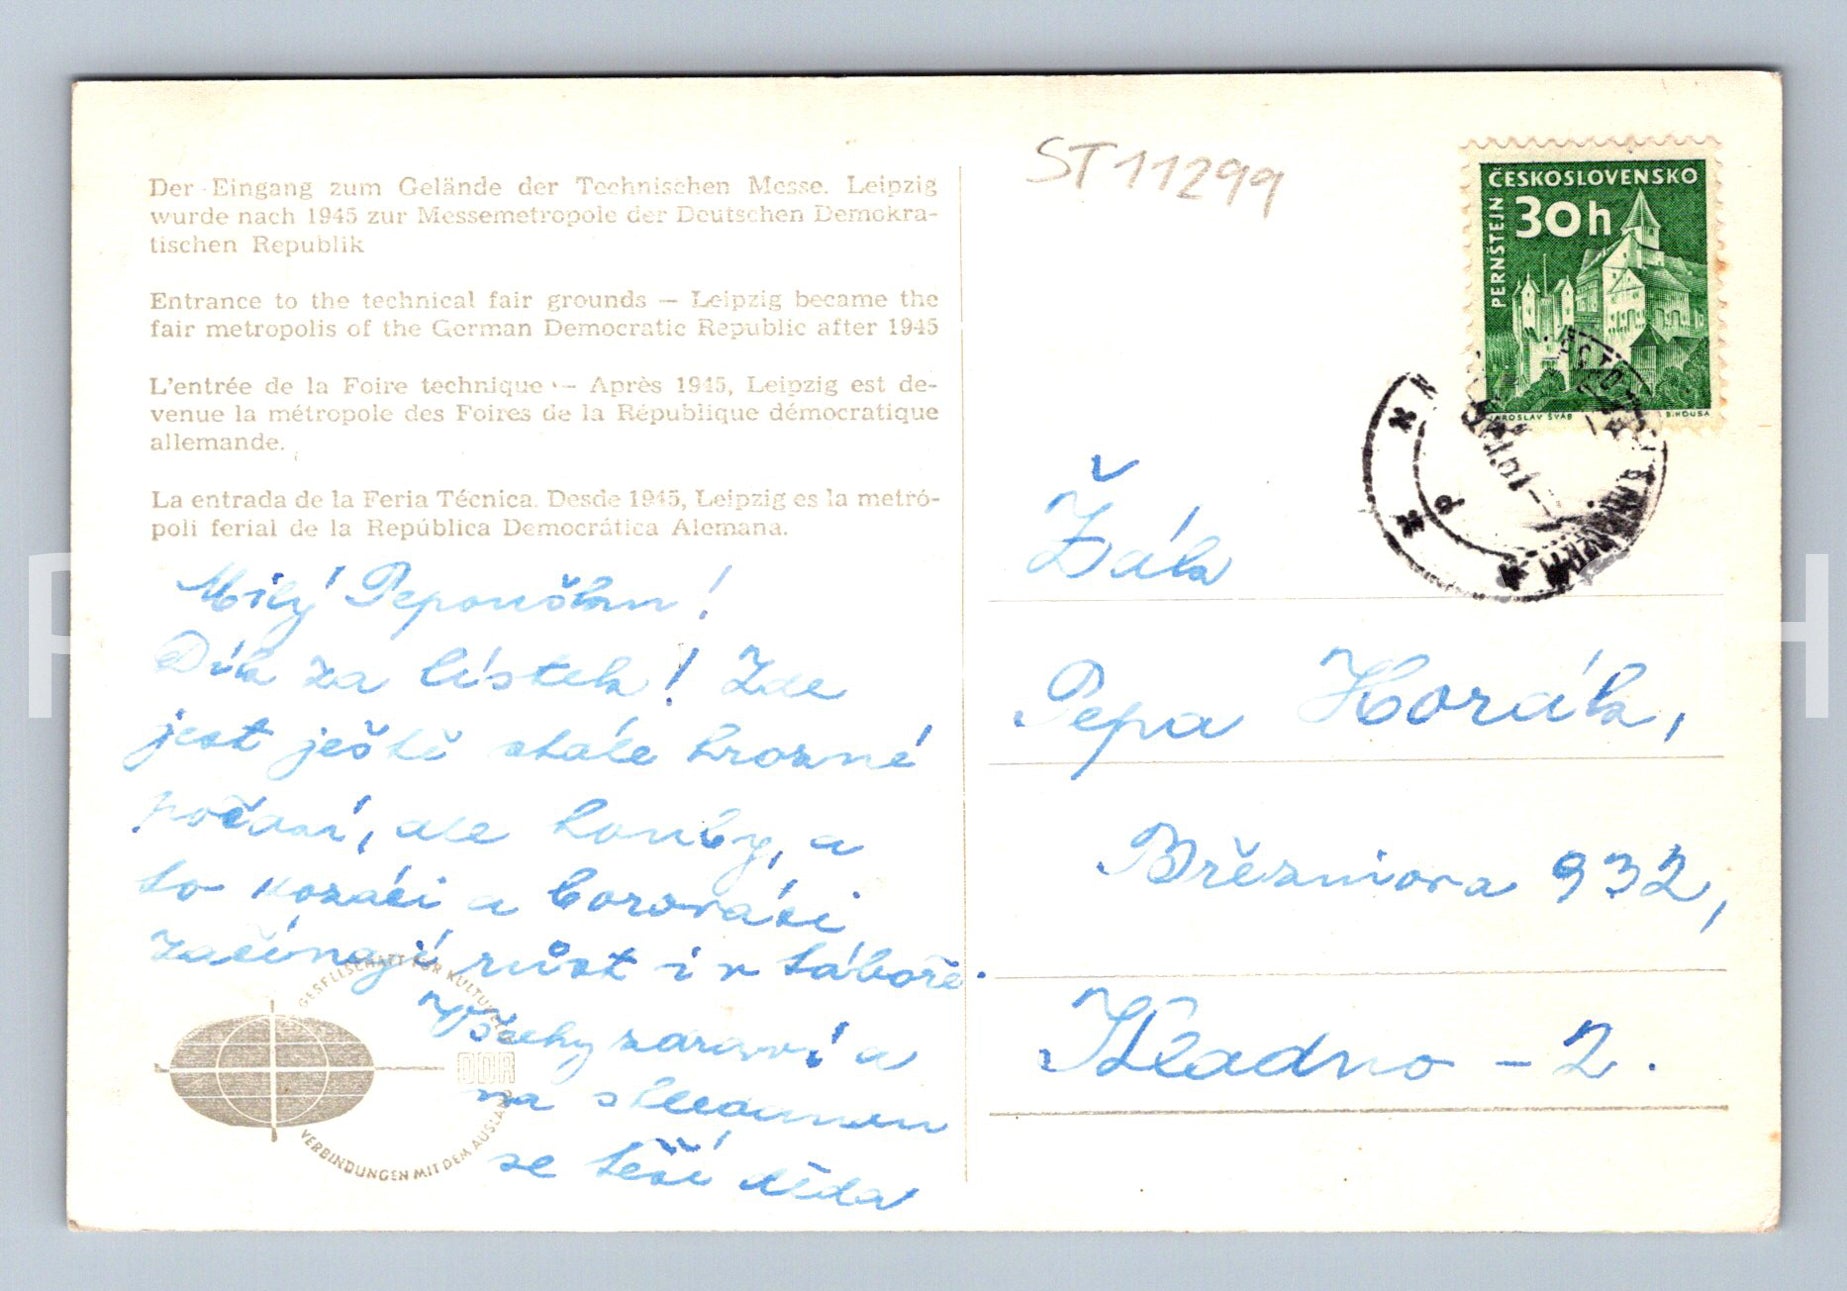 Der Eingang zum Gelände der Technischen Messe. Leipzig
wurde nach 1945 zur Messemetropole der Deutschen Demokra-
tischen Republik
Entrace to the technical fair grounds — Leipzig became the
fair metropolis of the German Democratic Republic after 1945
L'entrée de la Foire technique — Après 1945, Leipzig est de-
venue la métropole des Foires de la République démocratique
allemande.
La entrada de la Feria Técnica. Desde 1945, Leipzig es la metró-
poli ferial de la República Democrática Alemana.
Milý Pepoušku!
Dík za lístek! Zde
jest ještě stále hrozné
počasí, ale houby, a
to kozáci a
začínají růst i v táboře.
Všechny zdraví a
na shledanou
se těší děda
GESELLSCHAFT FÜR KULTURELLE
DDR
VERBINDUNGEN MIT DEM AUSLAND
ST11299
ČESKOSLOVENSKO
30h
PERNŠTEJN
JAROSLAV ŠVÁB
B. HOUSA
Žák
Pepa Horák,
Březinova 932,
Kladno - 2.